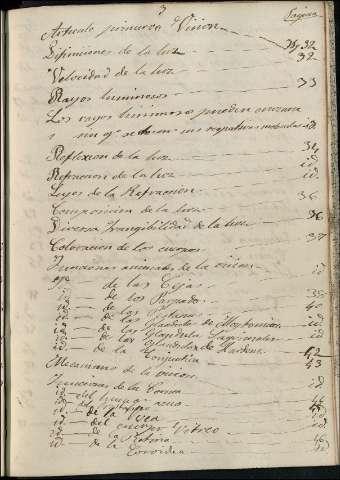 3
Página
Articulo primero. Vision
Difiniciones de la luz 31, 32
Velocidad de la luz 32
Rayos luminosos 33
Los rayos luminosos pueden
sin qe se sus respectivas moleculas id.
Reflexion de la luz 34
Refraccion de la luz id.
Leyes de la Refraccion id.
Composicion de la luz 36
Diversa frangibilidad de la luz 36
Coloracion de los cuerpos 37
Funciones animales de la vision id
de las Cejas id
id de los Parpados 39
id de las 40
id de las Glandulas de Meybomius id
id de las Glandulas Lagrimales id
id de las Glandulas de id
id de la Conjuntiva 42
Mecanismo de la vision 43
Funciones de la Cornea id
id del humor aqua id
id del
id de la Uvea id
id del cuerpo Vitreo id
id de la Retina 46
id de la Coroidea id